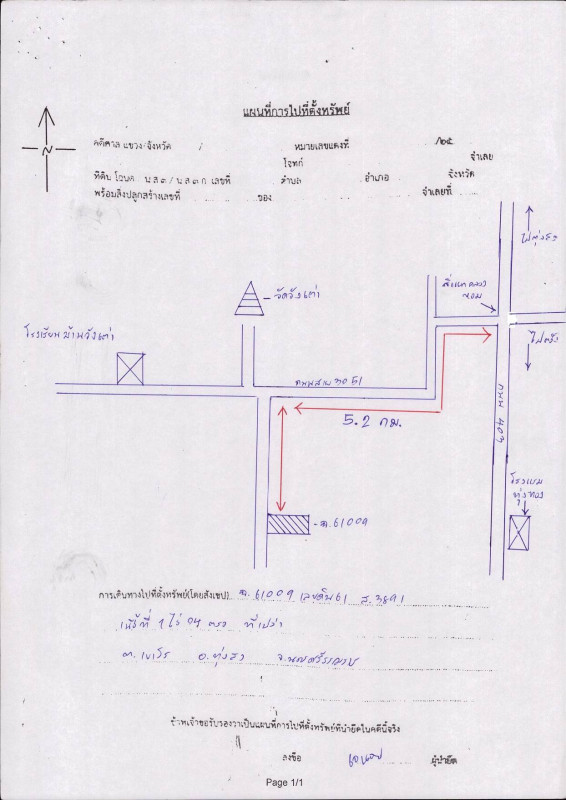 แผนที่การไปที่ตั้งทรัพย์
N
คดีศาล แขวง/จังหวัด หมายเลขแดงที่ /๒๕
โจทก์ จำเลย
ที่ดิน โฉนด น.ส.๓ / น.ส.๓ ก. เลขที่ ตำบล อำเภอ จังหวัด
พร้อมสิ่งปลูกสร้างเลขที่ ของ จำเลยที่
ไปทุ่งสง
สี่แยก
วัดวังเต่า
โรงเรียนบ้านวังเต่า
ไปตรัง
ถนนสาย 3051
5.2 กม.
ถนน 403
โรงแรม
ทุ่งทอง
ฉ.61009
การเดินทางไปที่ตั้งทรัพย์(โดยสังเขป) ฉ.61009 เลขดิน 61 ส.3891
เนื้อที่ 1 ไร่ 04 ตรว ที่เปล่า
ต.เขาโร อ.ทุ่งสง จ.นครศรีธรรมราช
ข้าพเจ้าขอรับรองว่าเป็นแผนที่การไปที่ตั้งทรัพย์ที่นำยึดในคดีนี้จริง
ลงชื่อ ผู้นำยึด
Page 1/1